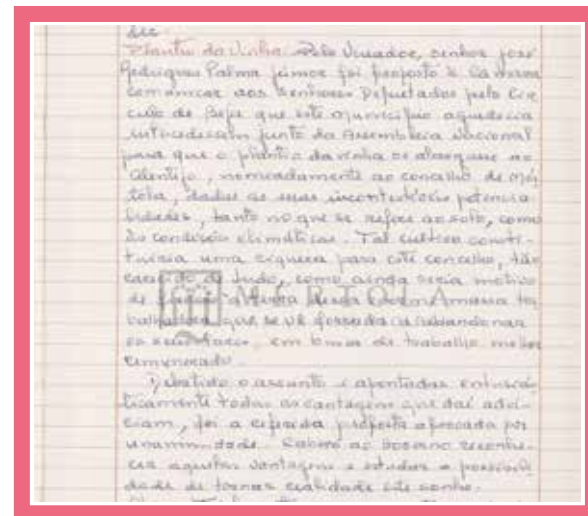 Plantio da Vinha - Pelo Vereador, senhor José
Rodrigues Palma júnior foi proposto à Câmara
comunicar aos senhores Deputados pelo Cir
culo de Beja que este município agradecia
intercedessem junto da Assembleia Nacional
para que o plantio da vinha se alargasse ao
Alentejo, nomeadamente ao concelho de Mér
tola, dadas as suas incontestáveis potencia
lidades, tanto no que se refere ao solo, como
às condições climáticas. Tal cultura consti-
tuiria uma riqueza para este concelho, tão
carecido de tudo, como ainda seria motivo
de à terra desta massa tra
balhadora, que se vê forçada a abandonar
os seus lares, em busca de trabalho melhor
remunerado.
Debatido o assunto e apontadas entusiás
ticamente todas as vantagens que daí advi-
riam, foi a referida proposta aprovada por
unanimidade. Caberá ao Governo reconhe-
cer aquelas vantagens e estudar a possibili
dade de tornar realidade este sonho.